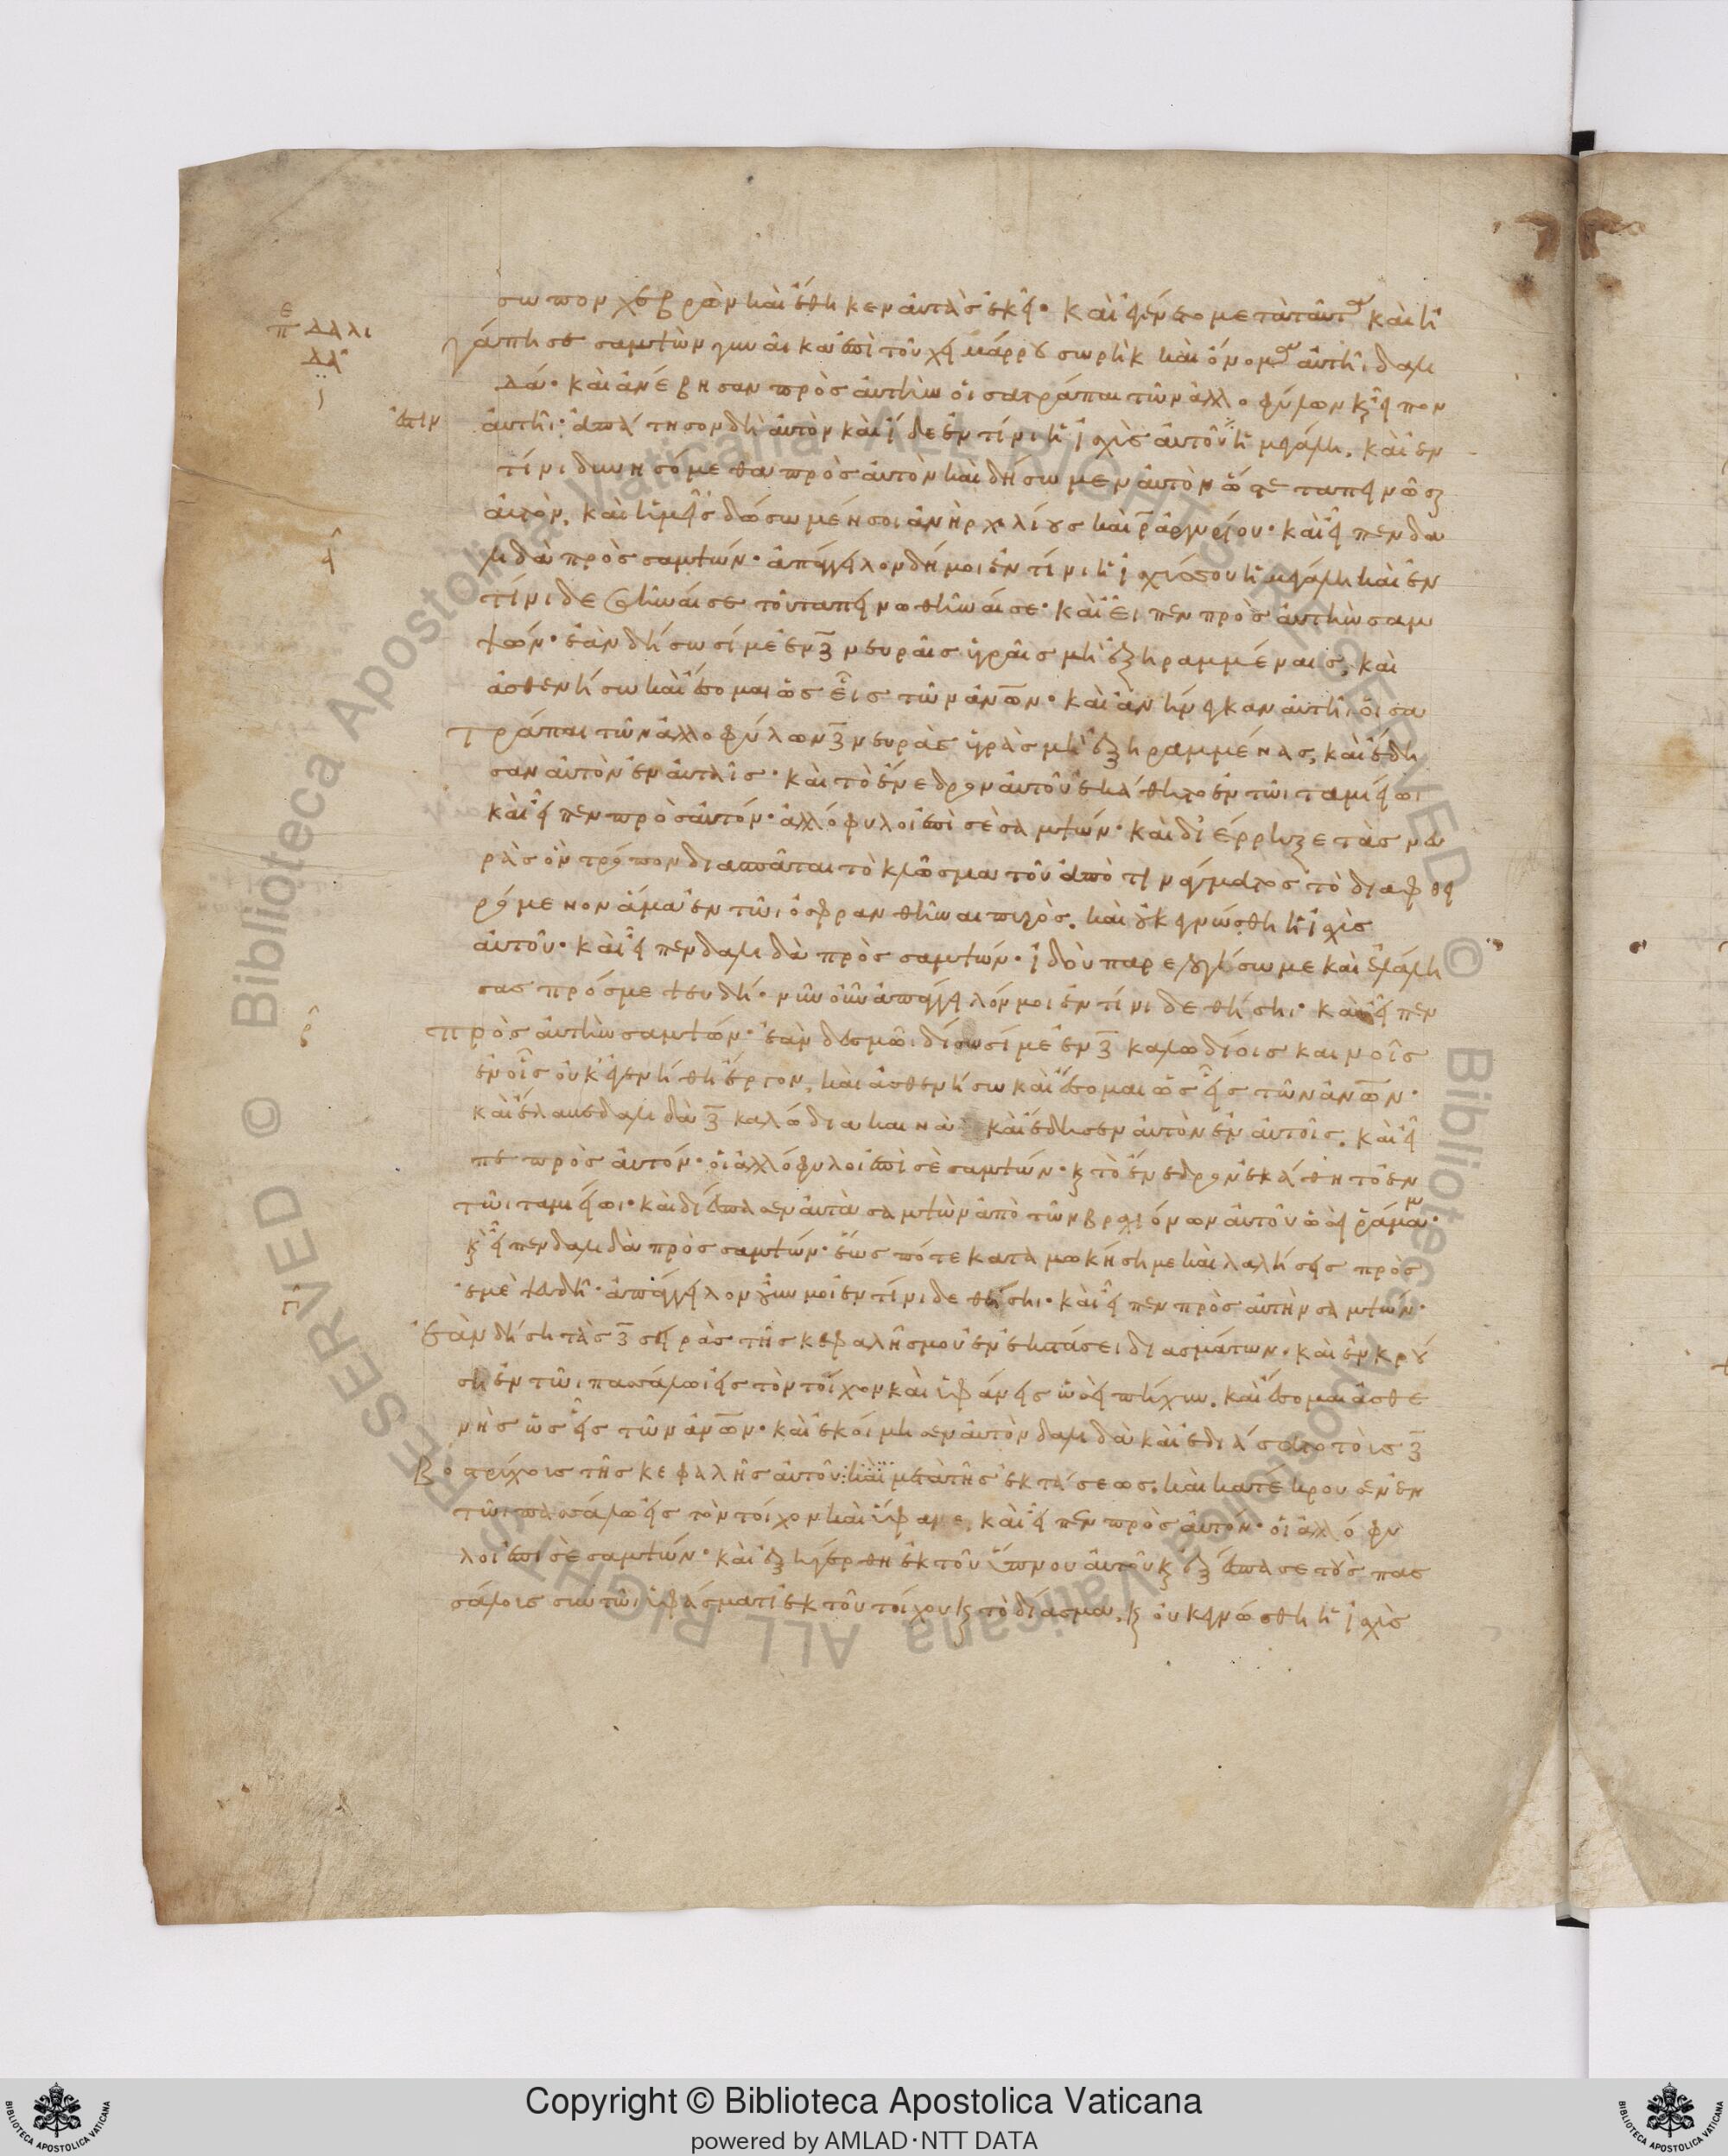 σωπον χεβρὼν καὶ ἔθηκεν ἀυτὰς ἐκεῖ· καὶ ἐγένετο μετὰ ταῦτα καὶ ἠ
γάπησε σαμψὼν γυναῖκα ἐπὶ τοῦ χειμάρρου σωρὴκ καὶ ὄνομα ἀυτῆι δαλι
δά· καὶ ἀνέβησαν πρὸς ἀυτὴν ὁι σατράπαι τῶν ἀλλοφύλων κ εἶπον
ἀυτῆι· ἀπάτησον δὴ ἀυτὸν καὶ ἴδε ἐν τίνι ἡ ἰσχὺς ἀυτοῦ ἡ μεγάλη. καὶ ἐν
τίνι δυνησόμεθα πρὸς ἀυτὸν καὶ δήσωμεν ἀυτὸν ὥστε ταπεινῶσαι
ἀυτόν. καὶ ἡμεῖς δώσωμέν σοι ἀνὴρ χιλίους καὶ ρ ἀργυρίου· καὶ εἶπεν δα
λιδὰ πρὸς σαμψών· ἀπάγγειλον δή μοι ἐν τίνι ἡ ἰσχύς σου ἡ μεγάλη καὶ ἐν
τίνι δεθῆναί σε τοῦ ταπεινωθῆναί σε· καὶ εἶπεν πρὸς ἀυτὴν σαμ
ψών· ἐὰν δήσωσί με ἐν ζ νευραῖς ὑγραῖς μὴ ἐξηραμμέναις, καὶ
ἀσθενήσω καὶ ἔσομαι ὡς εἷς τῶν ἀνων· καὶ ἀνήνεγκαν ἀυτῆι ὁι σα
τράπαι τῶν ἀλλοφύλων ζ νευρὰς ὑγρὰς μὴ ἐξηραμμένας, καὶ ἔδη
σαν ἀυτὸν ἐν ἀυταῖς· καὶ τὸ ἔνεδρον ἀυτοῦ ἐκάθητο ἐν τῶι ταμιείωι
καὶ εἶπεν πρὸς ἀυτόν· ἀλλόφυλοι ἐπὶ σὲ σαμψών· καὶ διέρρηξε τὰς νευ
ρὰς ὃν τρόπον διασπᾶται τὸ κλῶσμα τοῦ ἀποτινάγματος τὸ διαφθει
ρόμενον ἅμα ἐν τῶι ὀσφρανθῆναι πυρός. καὶ ουκ ἐγνώσθη ἡ ἰσχὺς
ἀυτοῦ· καὶ εἶπεν δαλιδὰ πρὸς σαμψών· ἰδοὺ παρελογίσω με καὶ ἐλάλη
σας πρός με ψευδῆ· νῦν οὖν ἀπάγγειλόν μοι ἐν τίνι δεθήσηι· καὶ εἶπεν
πρὸς ἀυτὴν σαμψών· ἐὰν δεσμῶι δήσωσί με ἐν ζ καλωδίοις καινοῖς
ἐν οἷς ὀυκ ἐγενήθη ἔργον, καὶ ἀσθενήσω καὶ ἔσομαι ὡς εἷς τῶν ἀνων·
καὶ ἔλαβε δαλιδὰ ζ καλώδια καινὰ καὶ ἔδησεν ἀυτὸν ἐν ἀυτοῖς. καὶ εἶ
πε πρὸς ἀυτόν· ὁι ἀλλόφυλοι ἐπὶ σὲ σαμψών· κ τὸ ἔνεδρον ἐκάθητο ἐν
τῶι ταμιείωι· καὶ διέσπασεν ἀυτὰ σαμψὼν ἀπὸ τῶν βραχιόνων ἀυτοῦ ὡσεὶ ῥάμμα·
κ εἶπεν δαλιδὰ πρὸς σαμψών· ἕως πότε καταμωκήση με καὶ λαλήσεις πρὸς
ἐμὲ ψευδῆ· ἀπάγγειλον νῦν μοι ἐν τίνι δεθήσηι· καὶ εἶπεν πρὸς ἀυτὴν σαμψών·
ἐὰν δήση τὰς ζ σειρὰς τῆς κεφαλῆς μου ἐν ἐκτάσει διασμάτων. καὶ ἐνκρού
ση ἐν τῶι πασσάλωι εἰς τὸν τοῖχον καὶ ὑφάνεις ὡσεὶ πήχυν. καὶ ἔσομαι ἀσθε
νὴς ὡς εἷς τῶν ἀνων· καὶ ἐκοίμησεν ἀυτὸν δαλιδὰ καὶ ἐδιάσατο τοὺς ζ
βοστρύχους τῆς κεφαλῆς ἀυτοῦ καὶ μετὰ τῆς ἐκτάσεως. καὶ κατέκρουσεν ἐν
τῶι πασσάλω εἰς τὸν τοῖχον καὶ ὕφανε, καὶ εἶπεν πρὸς ἀυτόν· ὁι ἀλλόφυ
λοι ἐπὶ σὲ σαμψών· καὶ ἐξηγέρθη ἐκ τοῦ ὕπνου ἀυτοῦ κ ἐξέσπασε τοὺς πασ
σάλους σὺν τῶι ὑφάσματι ἐκ τοῦ τοίχου κ τὸ δίασμα, κ ὀυκ ἐγνώσθη ἡ ἰσχὺς
Copyright © Biblioteca Apostolica Vaticana
powered by AMLAD·NTT DATA